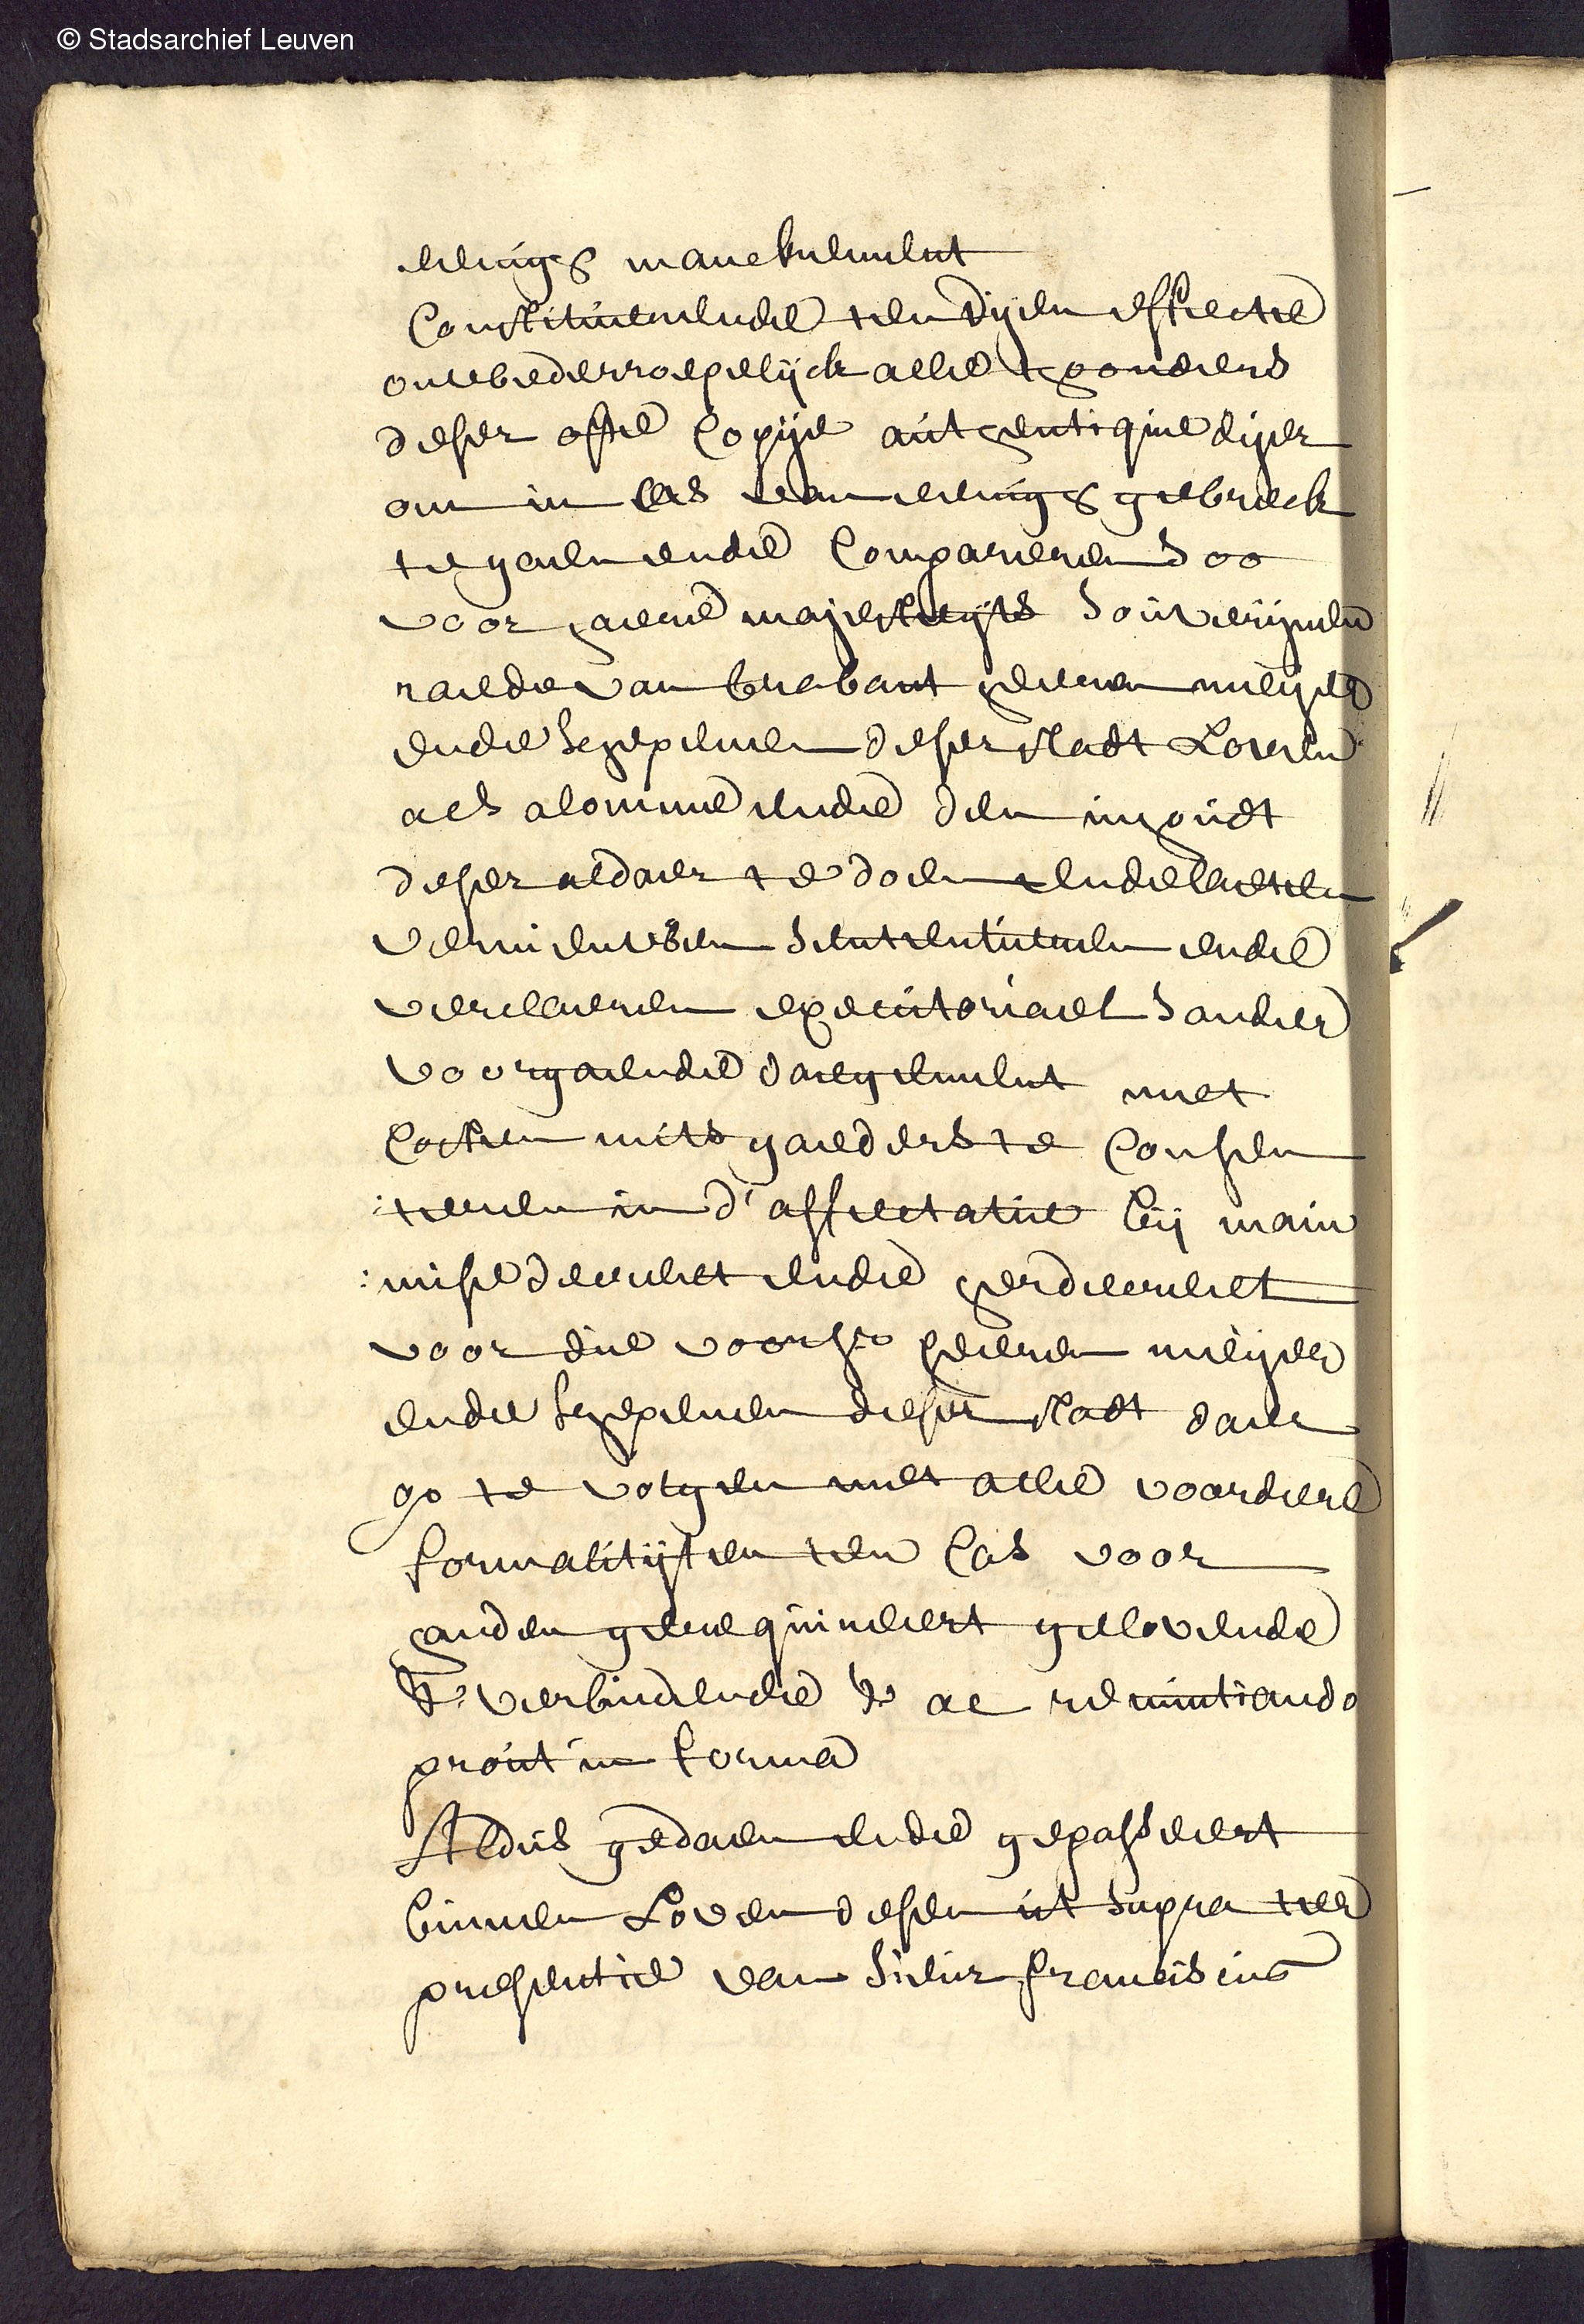 © Stadsarchief Leuven
eenigh manckement
Constitueerende ten dijen effecte
onwederroepelijck alle thonders
deser ofte copije authentique dijer
om in cas van eenigh gebreck
te gaen ende compareren soo
voor haere majesteyts souverijnen
raede van brabant heeren meyer
ende schepenen deser stadt Loven
als alomme ende den inhoudt
deser aldaer te doen ende laeten
vernieuwen sententieren ende
verclaeren executoriael sonder
voorgaende daegement met
costen mitsgaeders te consen
:teeren in d'affectatie bij main
:mise decreet ende herdecreet
voor die voors. heeren meyer
ende schepenen deser stadt daer
op te volgen met alle voordere
formalitijten ten cas voor
handen gerequireert gelovende
&a verbindende &a ac renuntiando
prout in forma
Aldus gedaen ende gepasseert
binnen Loven desen ut supra ter
presentie van sieur franciscus